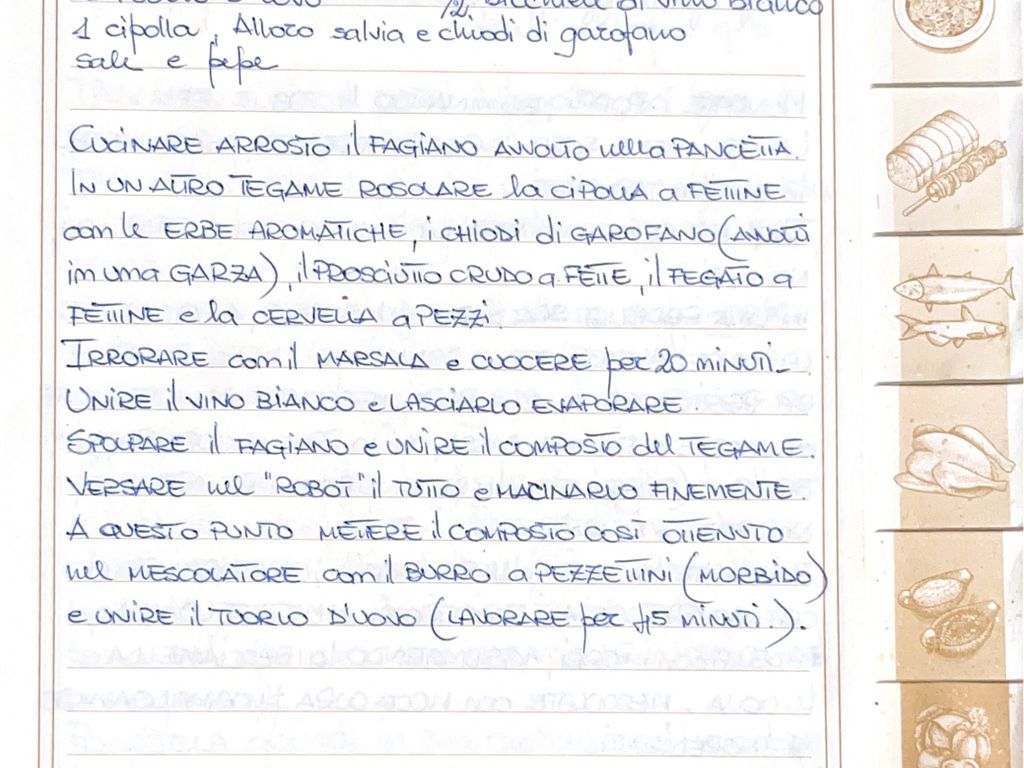 1/2 bicchiere di vino bianco
1 cipolla, Alloro salvia e chiodi di garofano
sale e pepe
CUCINARE ARROSTO il FAGIANO AVVOLTO nella PANCETTA.
IN UN ALTRO TEGAME ROSOLARE la CIPOLLA a FETTINE
con le ERBE AROMATICHE, i CHIODI di GAROFANO (AVVOLTI
in una GARZA), il PROSCIUTTO CRUDO a FETTE, il FEGATO a
FETTINE e la CERVELLA a PEZZI
IRRORARE con il MARSALA e CUOCERE per 20 MINUTI-
UNIRE il VINO BIANCO e LASCIARLO EVAPORARE.
SPOLPARE il FAGIANO e UNIRE il COMPOSTO del TEGAME.
VERSARE nel "ROBOT" il TUTTO e MACINARLO FINEMENTE.
A QUESTO PUNTO METTERE il COMPOSTO COSÌ OTTENUTO
nel MESCOLATORE con il BURRO a PEZZETTINI (MORBIDO)
e UNIRE il TUORLO D'UOVO (LAVORARE per 15 MINUTI.).